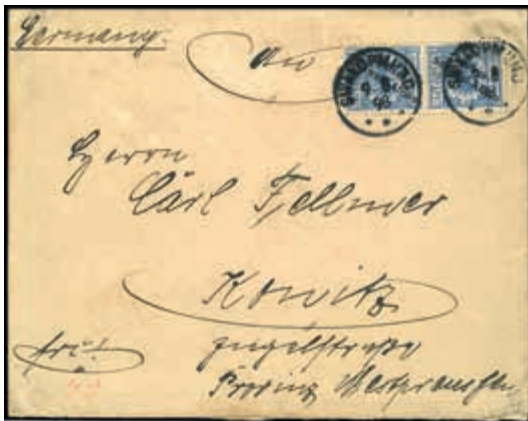 Germany.
An
SWAKOPMUND
9 8
98
SWAKOPMUND
9 8
98
Herrn
Carl Fellmer
Konitz
frei!
Provinz Westpreussen